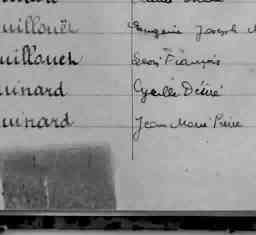 uillouët Eugène Joseph M
uillouët Léon François
uinard Cyrille Désiré
uinard Jean Marie Pierre